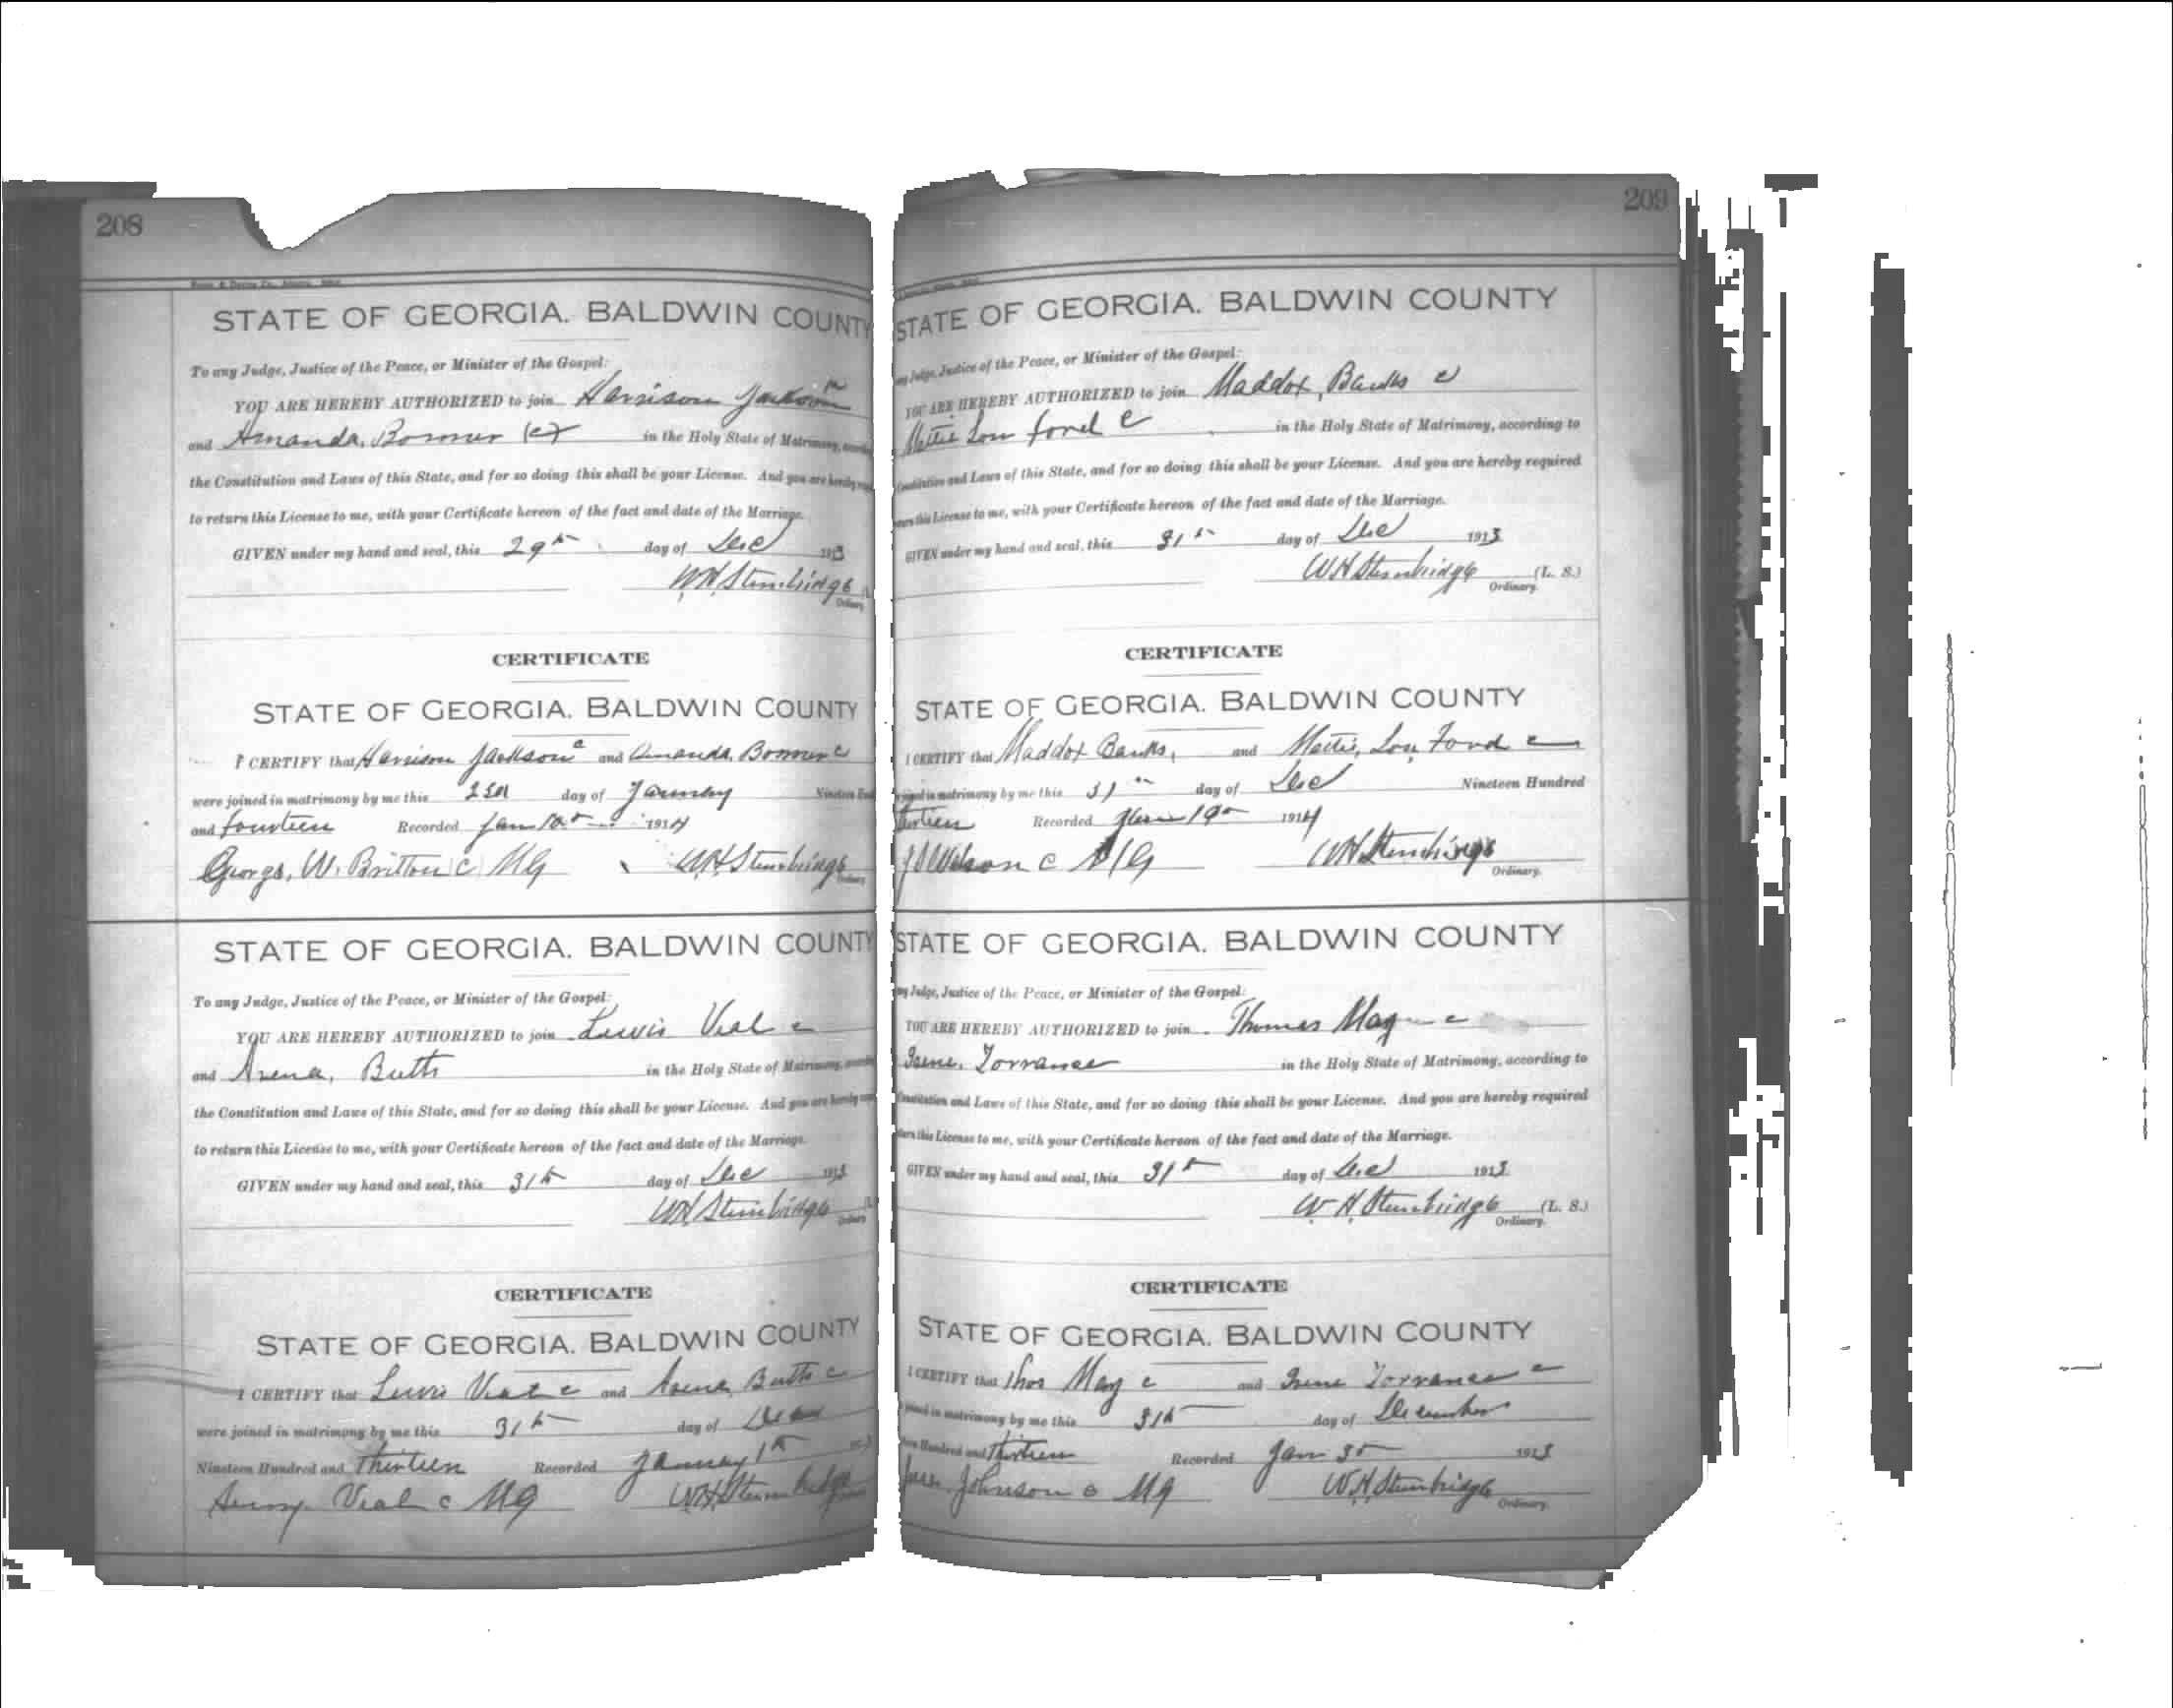 208
STATE OF GEORGIA. BALDWIN COUNTY
To any Judge, Justice of the Peace, or Minister of the Gospel:
YOU ARE HEREBY AUTHORIZED to join Harrison Jackson
and Amanda, Bonner (c) in the Holy State of Matrimony,
the Constitution and Laws of this State, and for so doing this shall be your License. And you are hereby
to return this License to me, with your Certificate hereon of the fact and date of the Marriage.
GIVEN under my hand and seal, this 29th day of Dec 1913
W.H. Stembridge
Ordinary
CERTIFICATE
STATE OF GEORGIA. BALDWIN COUNTY
I CERTIFY that Harrison Jackson c and Amanda, Bonner c
were joined in matrimony by me this day of January Nineteen
and fourteen Recorded Jan 1914
George, W. Britton c MG WH Stembridge
Ordinary
STATE OF GEORGIA. BALDWIN COUNTY
To any Judge, Justice of the Peace, or Minister of the Gospel:
YOU ARE HEREBY AUTHORIZED to join Lewis Veal c
and Arena, Butts in the Holy State of Matrimony,
the Constitution and Laws of this State, and for so doing this shall be your License. And you are hereby
to return this License to me, with your Certificate hereon of the fact and date of the Marriage.
GIVEN under my hand and seal, this 31th day of Dec 1913
WH Stembridge
Ordinary
CERTIFICATE
STATE OF GEORGIA. BALDWIN COUNTY
I CERTIFY that Lewis Veal c and Arena Butts c
were joined in matrimony by me this 31th day of
Nineteen Hundred and Thirteen Recorded January 1th
Veal c MG WH Stembridge
209
STATE OF GEORGIA. BALDWIN COUNTY
Judge, Justice of the Peace, or Minister of the Gospel:
YOU ARE HEREBY AUTHORIZED to join Maddox, Banks c
Mattie Lou Ford c in the Holy State of Matrimony, according to
Constitution and Laws of this State, and for so doing this shall be your License. And you are hereby required
this License to me, with your Certificate hereon of the fact and date of the Marriage.
GIVEN under my hand and seal, this 31th day of Dec 1913
WH Stembridge (L. S.)
Ordinary.
CERTIFICATE
STATE OF GEORGIA. BALDWIN COUNTY
I CERTIFY that Maddox Banks, and Mattie, Lou, Ford c
in matrimony by me this 31 day of Dec Nineteen Hundred
Thirteen Recorded 1914
Wilson c MG WH Stembridge
Ordinary.
STATE OF GEORGIA. BALDWIN COUNTY
Judge, Justice of the Peace, or Minister of the Gospel:
YOU ARE HEREBY AUTHORIZED to join Thomas May c
Irene, Torrance in the Holy State of Matrimony, according to
Constitution and Laws of this State, and for so doing this shall be your License. And you are hereby required
this License to me, with your Certificate hereon of the fact and date of the Marriage.
GIVEN under my hand and seal, this 31th day of Dec 1913
W H Stembridge (L. S.)
Ordinary.
CERTIFICATE
STATE OF GEORGIA. BALDWIN COUNTY
I CERTIFY that Thos May c and Irene Torrance c
in matrimony by me this 31th day of December
Hundred and Thirteen Recorded Jan 1913
Johnson c MG W.H. Stembridge
Ordinary.